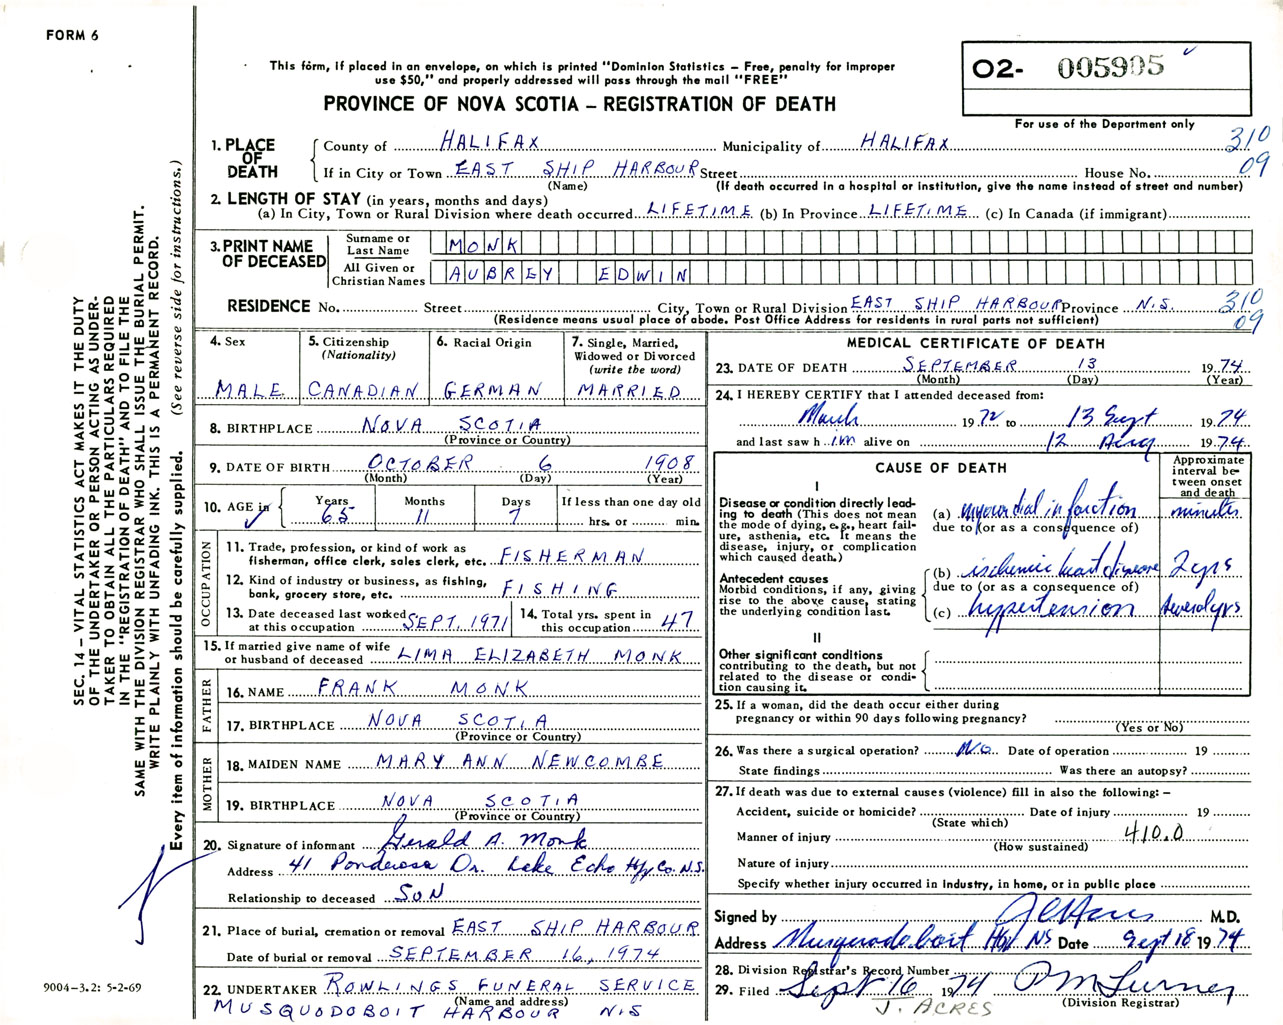 FORM 6
This form, if placed in an envelope, on which is printed "Dominion Statistics – Free, penalty for improper
use $50," and properly addressed will pass through the mail "FREE"
PROVINCE OF NOVA SCOTIA – REGISTRATION OF DEATH
O2- 005905
For use of the Department only
SEC. 14 – VITAL STATISTICS ACT MAKES IT THE DUTY
OF THE UNDERTAKER OR PERSON ACTING AS UNDER-
TAKER TO OBTAIN ALL THE PARTICULARS REQUIRED
IN THE "REGISTRATION OF DEATH" AND TO FILE THE
SAME WITH THE DIVISION REGISTRAR WHO SHALL ISSUE THE BURIAL PERMIT.
WRITE PLAINLY WITH UNFADING INK. THIS IS A PERMANENT RECORD.
Every item of information should be carefully supplied. (See reverse side for instructions.)
1. PLACE OF DEATH County of HALIFAX Municipality of HALIFAX 310
If in City or Town EAST SHIP HARBOUR Street House No. 09
(Name) (If death occurred in a hospital or institution, give the name instead of street and number)
2. LENGTH OF STAY (in years, months and days)
(a) In City, Town or Rural Division where death occurred LIFETIME (b) In Province LIFETIME (c) In Canada (if immigrant)
3. PRINT NAME OF DECEASED
Surname or Last Name MONK
All Given or Christian Names AUBREY EDWIN
RESIDENCE No. Street City, Town or Rural Division EAST SHIP HARBOUR Province N.S. 310
(Residence means usual place of abode. Post Office Address for residents in rural parts not sufficient) 09
4. Sex MALE
5. Citizenship (Nationality) CANADIAN
6. Racial Origin GERMAN
7. Single, Married, Widowed or Divorced (write the word) MARRIED
8. BIRTHPLACE NOVA SCOTIA
(Province or Country)
9. DATE OF BIRTH OCTOBER 6 1908
(Month) (Day) (Year)
10. AGE in Years 65 Months 11 Days 7 If less than one day old hrs. or min.
OCCUPATION
11. Trade, profession, or kind of work as
fisherman, office clerk, sales clerk, etc. FISHERMAN
12. Kind of industry or business, as fishing,
bank, grocery store, etc. FISHING
13. Date deceased last worked
at this occupation SEPT. 1971
14. Total yrs. spent in
this occupation 47
15. If married give name of wife
or husband of deceased LIMA ELIZABETH MONK
FATHER
16. NAME FRANK MONK
17. BIRTHPLACE NOVA SCOTIA
(Province or Country)
MOTHER
18. MAIDEN NAME MARY ANN NEWCOMBE
19. BIRTHPLACE NOVA SCOTIA
(Province or Country)
20. Signature of informant Gerald A. Monk
Address 41 Ponderosa Dr. Lake Echo Hfx Co. N.S.
Relationship to deceased SON
21. Place of burial, cremation or removal EAST SHIP HARBOUR
Date of burial or removal SEPTEMBER 16, 1974
22. UNDERTAKER ROWLINGS FUNERAL SERVICE
(Name and address)
MUSQUODOBOIT HARBOUR N.S
9004–3.2: 5-2-69
MEDICAL CERTIFICATE OF DEATH
23. DATE OF DEATH SEPTEMBER 13 1974
(Month) (Day) (Year)
24. I HEREBY CERTIFY that I attended deceased from:
March 1972 to 13 Sept 1974
and last saw him alive on 12 Aug 1974
CAUSE OF DEATH
Approximate interval between onset and death
I
Disease or condition directly lead-
ing to death (This does not
mean the mode of dying, e.g., heart fail-
ure, asthenia, etc. It means the
disease, injury, or complication
which caused death.)
(a) myocardial infarction minutes
due to (or as a consequence of)
Antecedent causes
Morbid conditions, if any, giving
rise to the above cause, stating
the underlying condition last.
(b) ischemic heart disease 2 yrs
due to (or as a consequence of)
(c) hypertension several yrs
II
Other significant conditions
contributing to the death, but not
related to the disease or condi-
tion causing it.
25. If a woman, did the death occur either during
pregnancy or within 90 days following pregnancy?
(Yes or No)
26. Was there a surgical operation? No Date of operation 19
State findings Was there an autopsy?
27. If death was due to external causes (violence) fill in also the following: –
Accident, suicide or homicide? Date of injury 19
(State which)
Manner of injury 410.0
(How sustained)
Nature of injury
Specify whether injury occurred in industry, in home, or in public place
Signed by M.D.
Address Musquodoboit Hbr NS Date Sept 18 1974
28. Division Registrar's Record Number
29. Filed Sept 16 1974 P M Turner
(Division Registrar)
J. ACRES